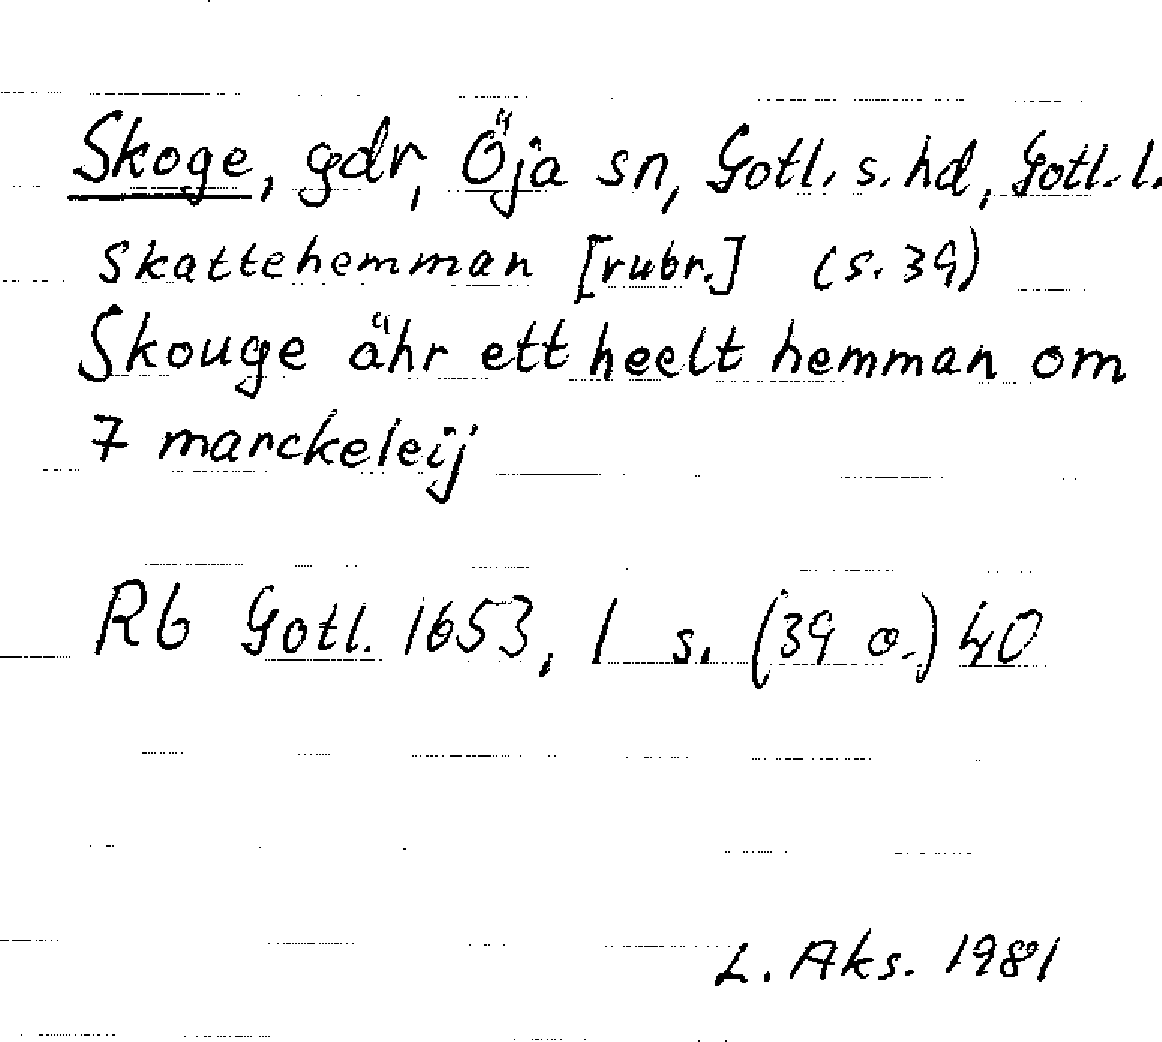 Skoge, gdr, Öja sn, Gotl. s. hd, Gotl. l.
skattehemman [rubr.] (s. 39)
Skouge ähr ett heelt hemman om
7 marckeleij
Rb Gotl. 1653, 1 s. (39 o.) 40
L. Aks. 1981